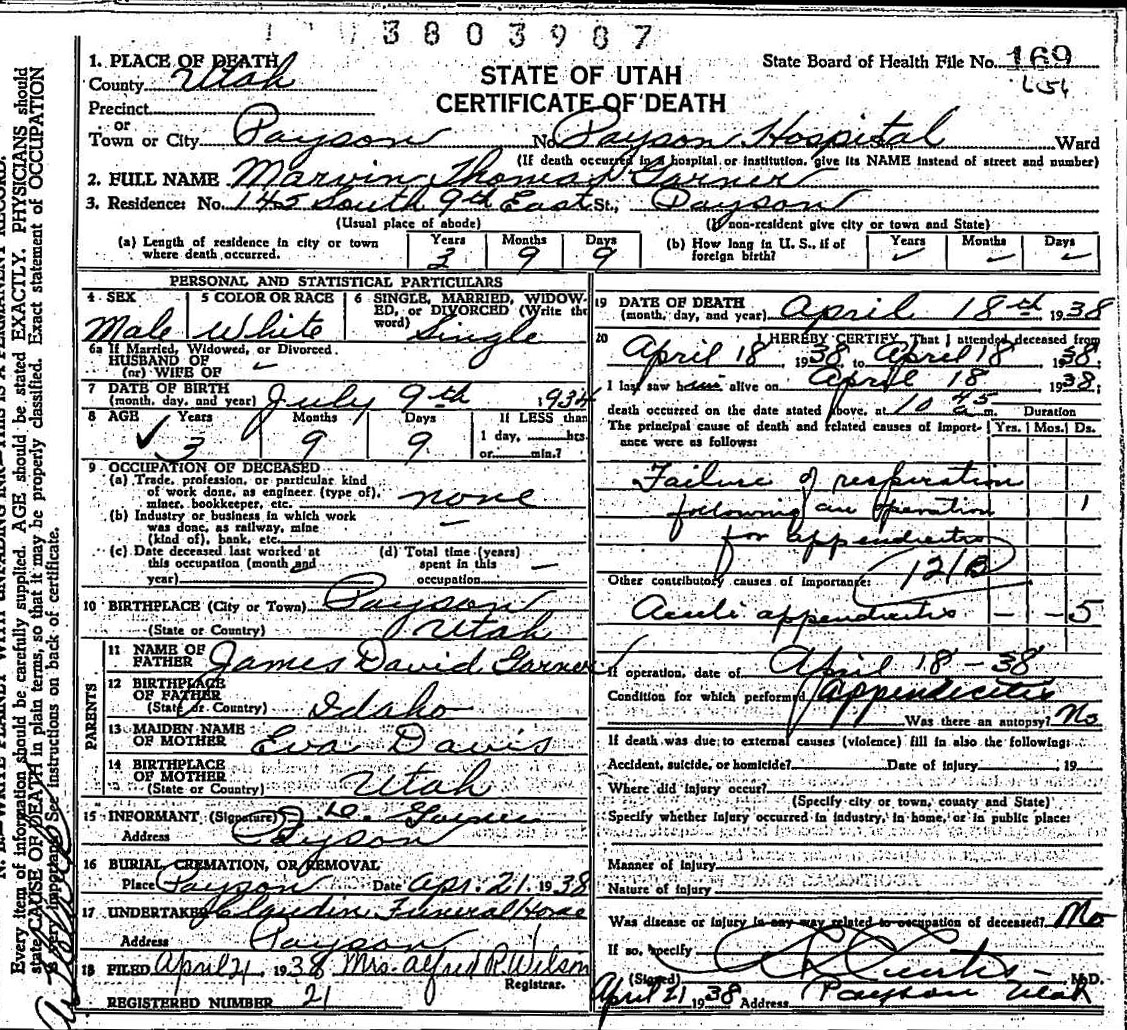 3803987
1. PLACE OF DEATH
County Utah
State Board of Health File No. 169
STATE OF UTAH
CERTIFICATE OF DEATH
Precinct
or
Town or City Payson No. Payson Hospital Ward
(If death occurred in a hospital or institution, give its NAME instead of street and number)
2. FULL NAME Marvin Thomas Garner
3. Residence: No. 145 South 9th East St., Payson
(Usual place of abode) (If non-resident give city or town and State)
(a) Length of residence in city or town where death occurred. Years 3 Months 9 Days 9
(b) How long in U. S., if of foreign birth? Years – Months – Days –
PERSONAL AND STATISTICAL PARTICULARS
4 SEX Male
5 COLOR OR RACE White
6 SINGLE, MARRIED, WIDOWED, OR DIVORCED (Write the word) Single
6a If Married, Widowed, or Divorced.
HUSBAND OF
(or) WIFE OF –
7 DATE OF BIRTH
(month, day, and year) July 9th 1934
8 AGE Years 3 Months 9 Days 9 If LESS than
1 day, hrs.
or min.?
9 OCCUPATION OF DECEASED
(a) Trade, profession, or particular kind
of work done, as engineer (type of),
miner, bookkeeper, etc. none
(b) Industry or business in which work
was done, as railway, mine
(kind of), bank, etc. –
(c) Date deceased last worked at
this occupation (month and
year)
(d) Total time (years)
spent in this
occupation –
10 BIRTHPLACE (City or Town) Payson
(State or Country) Utah
PARENTS
11 NAME OF
FATHER James David Garner
12 BIRTHPLACE
OF FATHER
(State or Country) Idaho
13 MAIDEN NAME
OF MOTHER Eva Davis
14 BIRTHPLACE
OF MOTHER
(State or Country) Utah
15 INFORMANT (Signature) J. D. Garner
Address Payson
16 BURIAL, CREMATION, OR REMOVAL
Place Payson Date Apr. 21. 1938
17 UNDERTAKER Claudin Funeral Home
Address Payson
18 FILED April 21 1938 Mrs. Alfred R. Wilson
Registrar.
REGISTERED NUMBER 21
19 DATE OF DEATH
(month, day, and year) April 18th 1938
20 I HEREBY CERTIFY, That I attended deceased from
April 18 1938, to April 18 1938,
I last saw him alive on April 18 1938;
death occurred on the date stated above, at 10 45 a.m. Duration
The principal cause of death and related causes of importance were as follows: Yrs. Mos. Ds.
Failure of respiration
following an operation 1
for appendicitis
121B
Other contributory causes of importance:
Acute appendicitis – – 5
If operation, date of April 18 - 38
Condition for which performed Appendicitis
Was there an autopsy? No
If death was due to external causes (violence) fill in also the following:
Accident, suicide, or homicide? Date of injury 19
Where did injury occur?
(Specify city or town, county and State)
Specify whether injury occurred in industry, in home, or in public place:
Manner of injury
Nature of injury
Was disease or injury in any way related to occupation of deceased? No
If so, specify
(Signed) Curtis M.D.
April 21 1938 Address Payson Utah
N. B.—WRITE PLAINLY WITH UNFADING INK—THIS IS A PERMANENT RECORD.
Every item of information should be carefully supplied. AGE should be stated EXACTLY. PHYSICIANS should
state CAUSE OF DEATH in plain terms, so that it may be properly classified. Exact statement of OCCUPATION
is very important. See instructions on back of certificate.